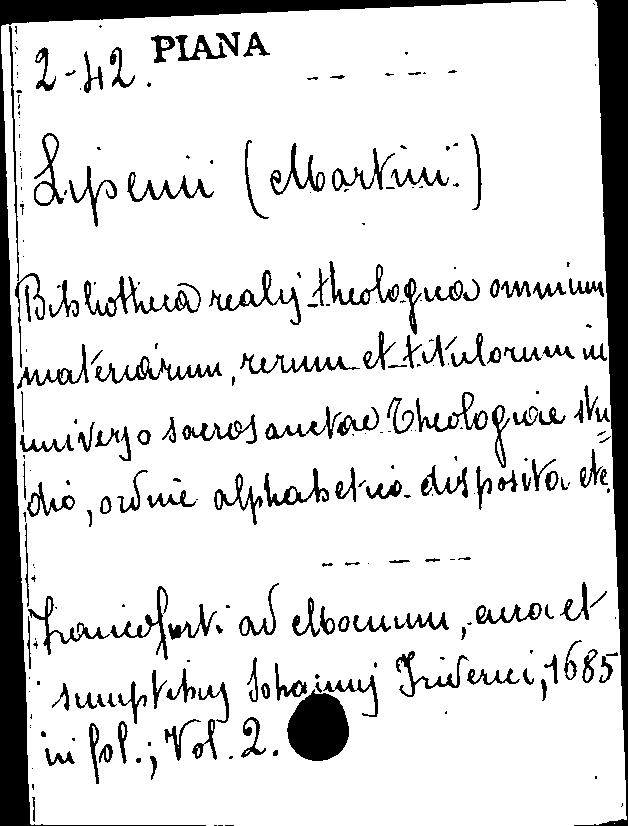 2-42. PIANA
Lipenii (Martini.)
Bibliotheca realis theologica omnium
materiarum, rerum et titulorum in
universo sacrosanctae Theologiae stu=
dio, ordine alphabetico disposita etc.
Francofurti ad Moenum, cura et
sumptibus Johannis Friderici, 1685
in fol.; Vol. 2.